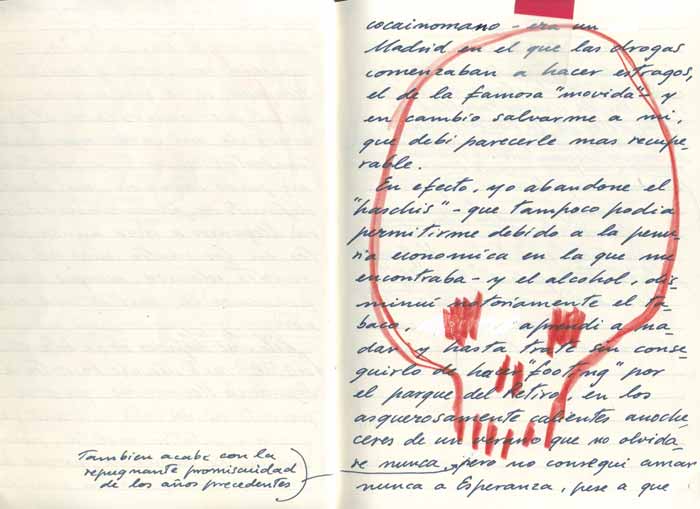 cocainomano - era un
Madrid en el que las drogas
comenzaban a hacer estragos,
el de la famosa "movida" - y
en cambio salvarme a mi,
que debi parecerle mas recupe-
rable.
En efecto, yo abandone el
"haschis" - que tampoco podia
permitirme debido a la penu-
ria economica en la que me
encontraba - y el alcohol, dis-
minuí notoriamente el ta-
baco, aprendi a na-
dar y hasta trate sin conse-
guirlo de hacer "footing" por
el parque del Retiro, en los
asquerosamente calientes anoche-
ceres de un verano que no olvida-
re nunca, pero no consegui amar
nunca a Esperanza, pese a que
Tambien acabe con la
repugnante promiscuidad
de los años precedentes